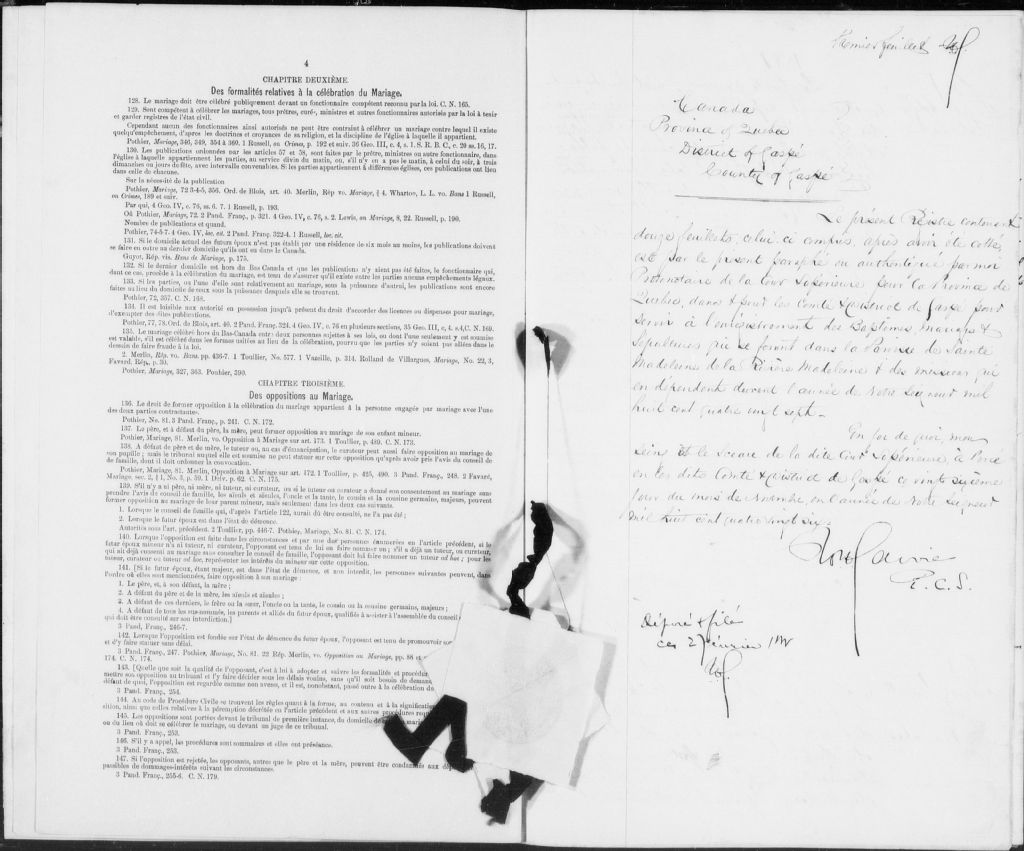 4
CHAPITRE DEUXIÈME.
Des formalités relatives à la célébration du Mariage.
128. Le mariage doit être célébré publiquement devant un fonctionnaire compétent reconnu par la loi. C. N. 165.
129. Sont compétents à célébrer les mariages, tous prêtres, curés, ministres et autres fonctionnaires autorisés par la loi à tenir
et garder registres de l'état civil.
Cependant aucun des fonctionnaires ainsi autorisés ne peut être contraint à célébrer un mariage contre lequel il existe
quelqu'empêchement, d'après les doctrines et croyances de sa religion, et la discipline de l'église à laquelle il appartient.
Pothier, Mariage, 346, 349, 354 à 360. 1 Russell, on Crimes, p. 192 et suiv. 36 Geo. III, c. 4, s. 1. S. R. B. C., c. 20 ss. 16, 17.
130. Les publications ordonnées par les articles 57 et 58, sont faites par le prêtre, ministres ou autre fonctionnaire, dans
l'église à laquelle appartiennent les parties, au service divin du matin, ou, s'il n'y en a pas le matin, à celui du soir, à trois
dimanches ou jours de fête, avec intervalle convenables. Si les parties appartiennent à différentes églises, ces publications ont lieu
dans celle de chacune.
Sur la nécessité de la publication
Pothier, Mariage, 72 3-4-5, 356. Ord. de Blois, art. 40. Merlin, Rép vo. Mariage, § 4. Wharton, L. L. vo. Bans 1 Russell,
on Crimes, 189 et suiv.
Par qui, 4 Geo. IV, c. 76, ss. 6. 7. 1 Russell, p. 193.
Où Pothier, Mariage, 72. 2 Pand. Franç., p. 321. 4 Geo. IV, c. 76, s. 2. Lewis, on Mariage, 8, 22. Russell, p. 190.
Nombre de publications et quand.
Pothier, 74-5-7. 4 Geo. IV, loc. cit. 2 Pand. Franç. 322-4. 1 Russell, loc. cit.
131. Si le domicile actuel des futurs époux n'est pas établi par une résidence de six mois au moins, les publications doivent
se faire en outre au dernier domicile qu'ils ont eu dans le Canada.
Guyot, Rép. vis. Bans de Mariage, p. 175.
132. Si le dernier domicile est hors du Bas-Canada et que les publications n'y aient pas été faites, le fonctionnaire qui,
dans ce cas, procède à la célébration du mariage, est tenu de s'assurer qu'il existe entre les parties aucuns empêchements légaux.
133. Si les parties, ou l'une d'elle sont relativement au mariage, sous la puissance d'autrui, les publications sont encore
faites au lieu du domicile de ceux sous la puissance desquels elle se trouvent.
Pothier, 72, 357. C. N. 168.
134. Il est loisible aux autorité en possession jusqu'à présent du droit d'accorder des licences ou dispenses pour mariage,
d'exempter des dites publications.
Pothier, 77, 78. Ord. de Blois, art. 40. 2 Pand. Franç. 324. 4 Geo. IV, c. 76 en plusieurs sections, 35 Geo. III, c, 4. s.4, C. N. 169.
135. Le mariage célébré hors du Bas-Canada entre deux personnes sujettes à ses lois, ou dont l'une seulement y est soumise
est valable, s'il est célébré dans les formes usitées au lieu de la célébration, pourvu que les parties n'y soient pas allées dans le
dessein de faire fraude à la loi.
2. Merlin, Rép. vo. Bans, pp. 436-7. 1 Toullier, No. 577. 1 Vazeille, p. 314. Rolland de Villargues, Mariage, No. 22, 3,
Favard, Rép., p. 30.
Pothier, Mariage, 327, 363. Pouhier, 390.
CHAPITRE TROISIÈME.
Des oppositions au Mariage.
136. Le droit de former opposition à la célébration du mariage appartient à la personne engagée par mariage avec l'une
des deux parties contractantes.
Pothier, No. 81. 3 Pand. Franç., p. 241. C. N. 172.
137. Le père, et à défaut du père, la mère, peut former opposition au mariage de son enfant mineur.
Pothier, Mariage, 81. Merlin, vo. Opposition à Mariage sur art. 173. 1 Toullier, p. 489. C. N. 173.
138. A défaut de père et de mère, le tuteur ou, au cas d'émancipation, le curateur peut aussi faire opposition au mariage de
son pupille; mais le tribunal auquel elle est soumise ne peut statuer sur cette opposition qu'après avoir pris l'avis du conseil de
de famille, dont il doit ordonner la convocation.
Pothier, Mariage, 81. Merlin, Opposition à Mariage sur art. 172. 1 Toullier, p. 425, 490. 3 Pand. Franç., 248. 2 Favard,
Mariage, sec. 2, § 1, No. 3, p. 59. 1 Delv, p. 62. C. N. 175.
139. S'il n'y a ni père, ni mère, ni tuteur, ni curateur, ou si le tuteur ou curateur a donné son consentement au mariage sans
prendre l'avis du conseil de famille, les aïeuls et aïeules, l'oncle et la tante, le cousin et la cousine germains, majeurs, peuvent
former opposition au mariage de leur parent mineur, mais seulement dans les deux cas suivants.
1. Lorsque le conseil de famille qui, d'après l'article 122, aurait dû être consulté, ne l'a pas été;
2. Lorsque le futur époux est dans l'état de démence.
Autorités sous l'art. précédent. 2 Toullier, pp. 446-7. Pothier, Mariage, No. 81. C. N. 174.
140. Lorsque l'opposition est faite dans les circonstances et par une des personnes énumérées en l'article précédent, si le
futur époux mineur n'a ni tuteur, ni curateur, l'opposant est tenu de lui en faire nommer un; s'il a déjà un tuteur, ou curateur,
qui ait déjà consenti au mariage sans consulter le conseil de famille, l'opposant doit lui faire nommer un tuteur ad hoc; pour les
tuteur, curateur ou tuteur ad hoc, représenter les intérêts du mineur sur cette opposition.
141. [Si le futur époux, étant majeur, est dans l'état de démence, et non interdit, les personnes suivantes peuvent, dans
l'ordre où elles sont mentionnées, faire opposition à son mariage:
1. Le père, et, à son défaut, la mère;
2. A défaut du père et de la mère, les aïeuls et aïeules;
3. A défaut de ces derniers, le frère ou la sœur, l'oncle ou la tante, le cousin ou la cousine germains, majeurs;
4. A défaut de tous les sus-nommés, les parents et alliés du futur époux, qualifiés à assister à l'assemblée du conseil
qui doit être consulté sur son interdiction.]
3 Pand. Franç., 246-7.
142. Lorsque l'opposition est fondée sur l'état de démence du futur époux, l'opposant est tenu de promouvoir
et d'y faire statuer sans délai.
3 Pand. Franç., 247. Pothier, Mariage, No. 81. 22 Rép. Merlin, vo. Opposition au Mariage, pp. 88 et
174. C. N. 174.
143. [Quelle que soit la qualité de l'opposant, c'est à lui à adopter et suivre les formalités et procédur
mettre son opposition au tribunal et l'y faire décider sous les délais voulus, sans qu'il soit besoin de demand
défaut de quoi, l'opposition est regardée comme non avenue, et il est, nonobstant, passé outre à la célébration du
3 Pand. Franç., 254.
144. Au code de Procédure Civile se trouvent les règles quant à la forme, au contenu et à la signification
sition, ainsi que celles relatives à la péremption décrétée en l'article précédent et aux autres procédures
145. Les oppositions sont portées devant le tribunal de première instance, du domicile
ou du lieu où doit se célébrer le mariage, ou devant un juge de ce tribunal.
3 Pand. Franç., 253.
146. S'il y a appel, les procédures sont sommaires et elles ont préséance.
3 Pand. Franç., 253.
147. Si l'opposition est rejetée, les opposants, autres que le père et la mère, peuvent être condamnés aux
passibles de dommages-intérêts suivant les circonstances.
3 Pand. Franç., 255-6. C. N. 179.
Premier feuillet
Canada
Province of Quebec
District of Gaspé
County of Gaspé
Le présent Régistre contenant
douze feuillets, celui ci compris, après avoir été cotté,
est par le présent paraphé ou authentiqué par moi
Protonotaire de la Cour Supérieure pour la Province de
Québec, dans & pour les Comté & District de Gaspé pour
servir à l'enrégistrement des Baptêmes, mariages &
Sépultures qui se feront dans la Paroisse de Sainte
Madeleine de la Rivière Madeleine & des missions qui
en dépendent durant l'année de Notre Seigneur mil
huit cent quatre vingt sept.
En foi de quoi, mon
seing et le sceau de la dite Cour Supérieure, à Percé
en les dits Comté & District de Gaspé ce vingt sixième
jour du mois de Novembre, en l'année de Notre Seigneur
mil huit cent quatre vingt six.
P. C. S.
Déposé & filé
ce 2 février 1888